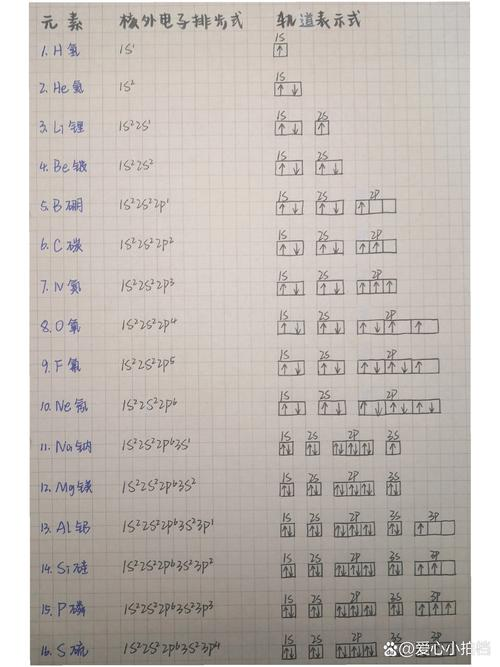 元素 核外电子排步式 轨道表示式
1. H 氢 1S¹ 1S ↑
2. He 氦 1S² 1S ↑↓
3. Li 锂 1S²2S¹ 1S ↑↓ 2S ↑
4. Be 铍 1S²2S² 1S ↑↓ 2S ↑↓
5. B 硼 1S²2S²2p¹ 1S ↑↓ 2S ↑↓ 2P ↑
6. C 碳 1S²2S²2p² 1S ↑↓ 2S ↑↓ 2P ↑ ↑
7. N 氮 1S²2S²2p³ 1S ↑↓ 2S ↑↓ 2P ↑ ↑ ↑
8. O 氧 1S²2S²2p⁴ 1S ↑↓ 2S ↑↓ 2P ↑↓ ↑ ↑
9. F 氟 1S²2S²2p⁵ 1S ↑↓ 2S ↑↓ 2P ↑↓ ↑↓ ↑
10. Ne 氖 1S²2S²2p⁶ 1S ↑↓ 2S ↑↓ 2P ↑↓ ↑↓ ↑↓
11. Na 钠 1S²2S²2p⁶3S¹ 1S ↑↓ 2S ↑↓ 2P ↑↓ ↑↓ ↑↓ 3S ↑
12. Mg 镁 1S²2S²2p⁶3S² 1S ↑↓ 2S ↑↓ 2P ↑↓ ↑↓ ↑↓ 3S ↑↓
13. Al 铝 1S²2S²2p⁶3S²3p¹ 1S ↑↓ 2S ↑↓ 2P ↑↓ ↑↓ ↑↓ 3S ↑↓ 3P ↑
14. Si 硅 1S²2S²2p⁶3S²3p² 1S ↑↓ 2S ↑↓ 2P ↑↓ ↑↓ ↑↓ 3S ↑↓ 3P ↑ ↑
15. P 磷 1S²2S²2p⁶3S²3p³ 1S ↑↓ 2S ↑↓ 2P ↑↓ ↑↓ ↑↓ 3S ↑↓ 3P ↑ ↑ ↑
16. S 硫 1S²2S²2p⁶3S²3p⁴ 1S ↑↓ 2S ↑↓ 2P ↑↓ ↑↓ ↑↓ 3S
@爱心小拍档